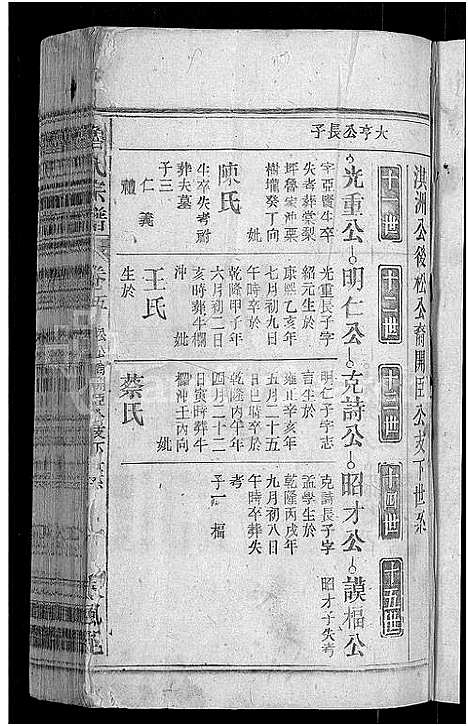 淇洲公後松公裔開臣公支下世系
十一世
十二世
十三世
十四世
十五世
大亨公長子
光重公
明仁公
克詩公
昭才公
謨楅公
字亞賢生卒
失考葬棠梨
坪魯家冲栗
樹壠癸丁向
妣
陳氏
生卒失考附
葬夫墓
子三
仁 義
禮
光重長子字
紹元生於
康熙乙亥年
七月初九日
午時卒於
乾隆甲子年
六月初二日
亥時葬牛欄
冲 妣
王氏
生於
明仁子字志
言生於
雍正辛亥年
五月二十五
日巳時卒於
乾隆丙午年
四月二十二
日寅時葬牛
欄冲壬丙向
妣
蔡氏
克詩長子字
孟學生於
乾隆丙戌年
九月初八日
午時卒葬失
考
子一 楅
昭才子失考
氏宗譜
卷五